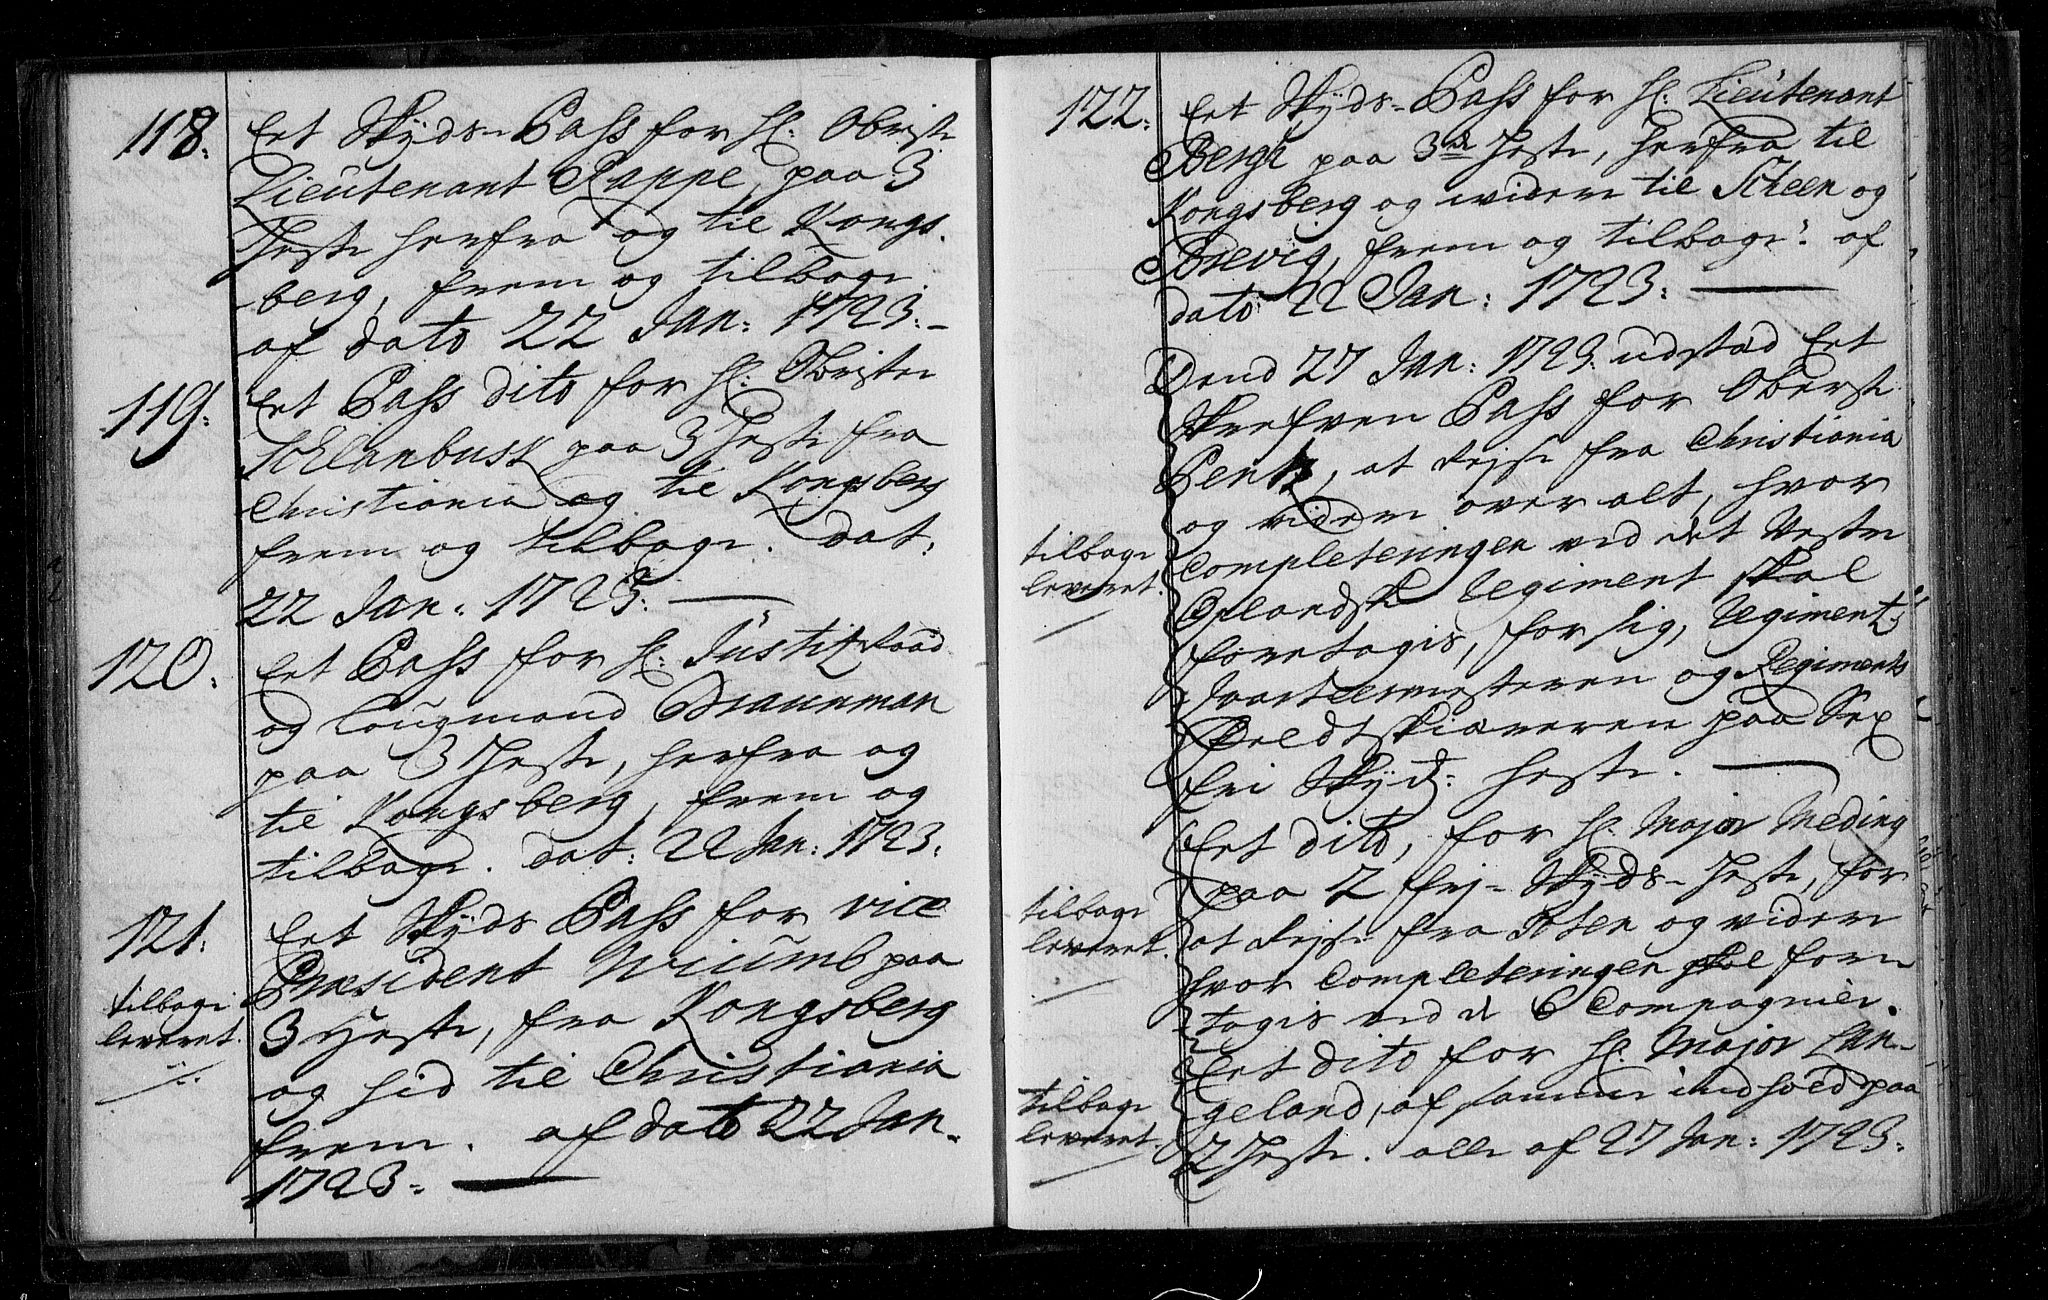 118. Eet Skyds-Pass for H: Obriste
Lieutenant Rappe, paa 3
Heste herfra og til Kongs-
berg, frem og tilbage.
af dato 22 Jan: 1723.
119. Eet Pass dito for H: Obriste
Schlanbusk paa 3 Heste fra
Christiania og til Kongsberg
frem og tilbage. dat:
22 Jan: 1723.
120. Eet Pass for H: Justitz Raad
og Laugmand Braunman
paa 3 Heste, herfra og
til Kongsberg, frem og
tilbage. dat: 22 Jan: 1723.
121. Eet Skyds Pass for vice
Præsident Wriumb paa
3 Heste, fra Kongsberg
og hid til Christiania
frem. af dato 22 Jan.
1723.
tilbage
leveret.
122. Eet Skyds-Pass for H: Lieutenant
Berge paa 3de Heste, herfra til
Kongsberg og widere til Scheen og
Brevig, frem og tilbage. af
dato 22 Jan: 1723.
Dend 27 Jan: 1723. udstæd Eet
Skrefven Pass for Oberste
Bentz, at Rejse fra Christiania
og videre over alt, hvor
Completeringen ved det Vestre
Oplandske Regiment skal
foretagis, for sig, Regiments
qvarteermesteren og Regiments
Feldtskiæreren paa Sex
fri Skyds: heste.
tilbage
leveret.
Eet dito, for H: Major Meding
paa 2 frj-Skyds-Heste, for
at Rejse fra Toten og videre
hvor Completeringen skal fore
tagis ved de 6 Compagnier.
tilbage
leveret.
Eet dito for H: Major Lan-
geland, af samme indhold paa
2 Heste. alle af 27 Jan: 1723.
tilbage
leveret.